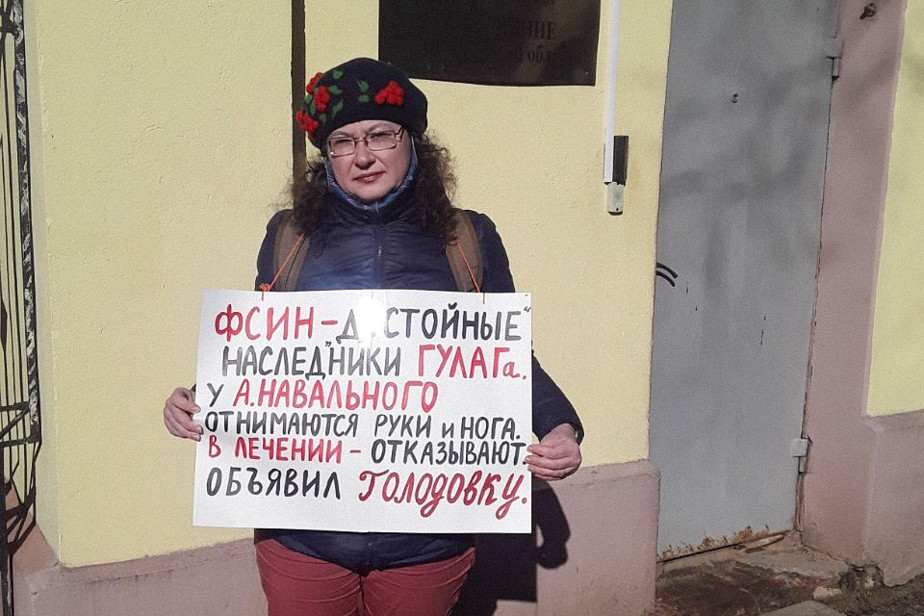 НИЕ
обл
ФСИН – „ДОСТОЙНЫЕ“
НАСЛЕДНИКИ ГУЛАГа.
У А.НАВАЛЬНОГО
ОТНИМАЮТСЯ РУКИ и НОГА.
В ЛЕЧЕНИИ – ОТКАЗЫВАЮТ.
ОБЪЯВИЛ ГОЛОДОВКУ.